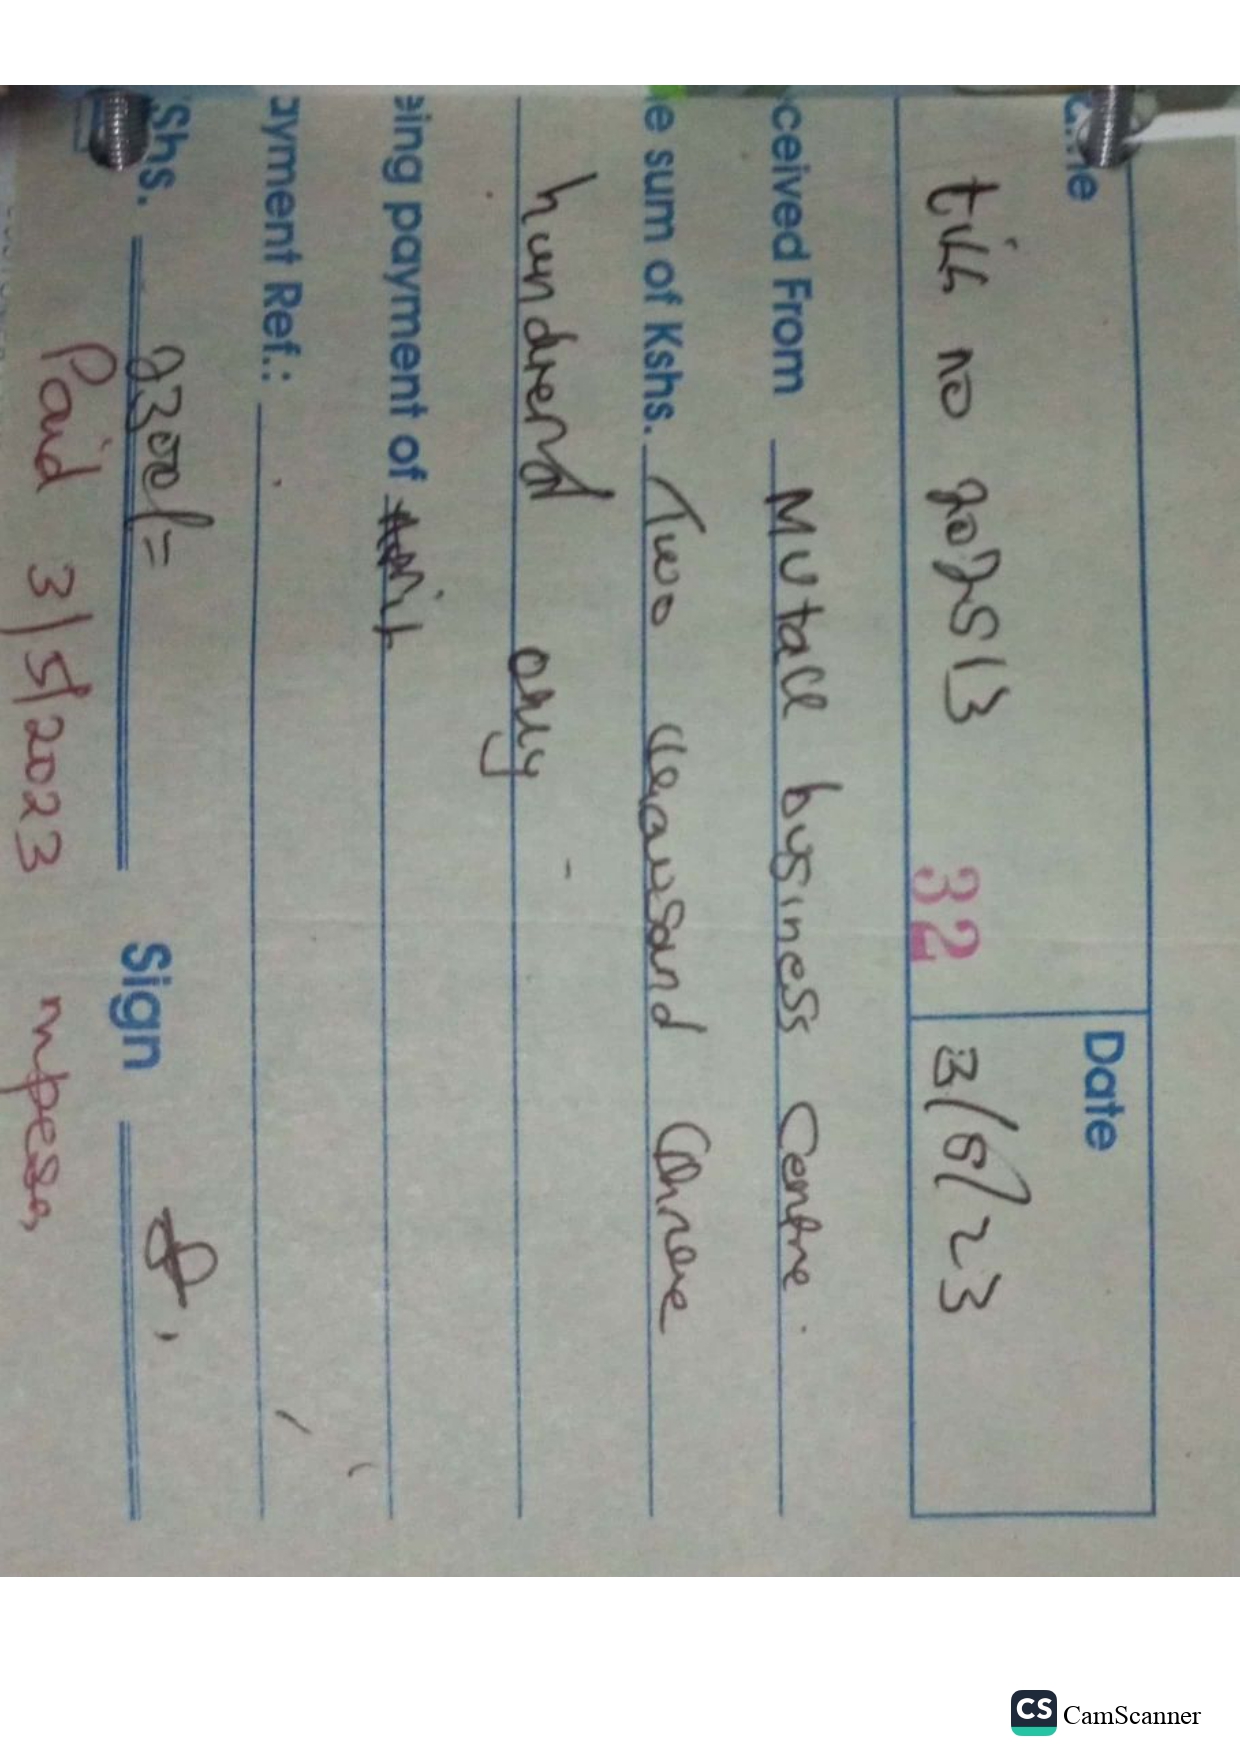 ame Date
till no 202513 32 3/5/23
ceived From Mutall business Centre.
e sum of Kshs. Two thousand three
hundrend only
eing payment of
ayment Ref.:
Shs. 2300/= Sign
Paid 3/5/2023 mpesa
CS CamScanner